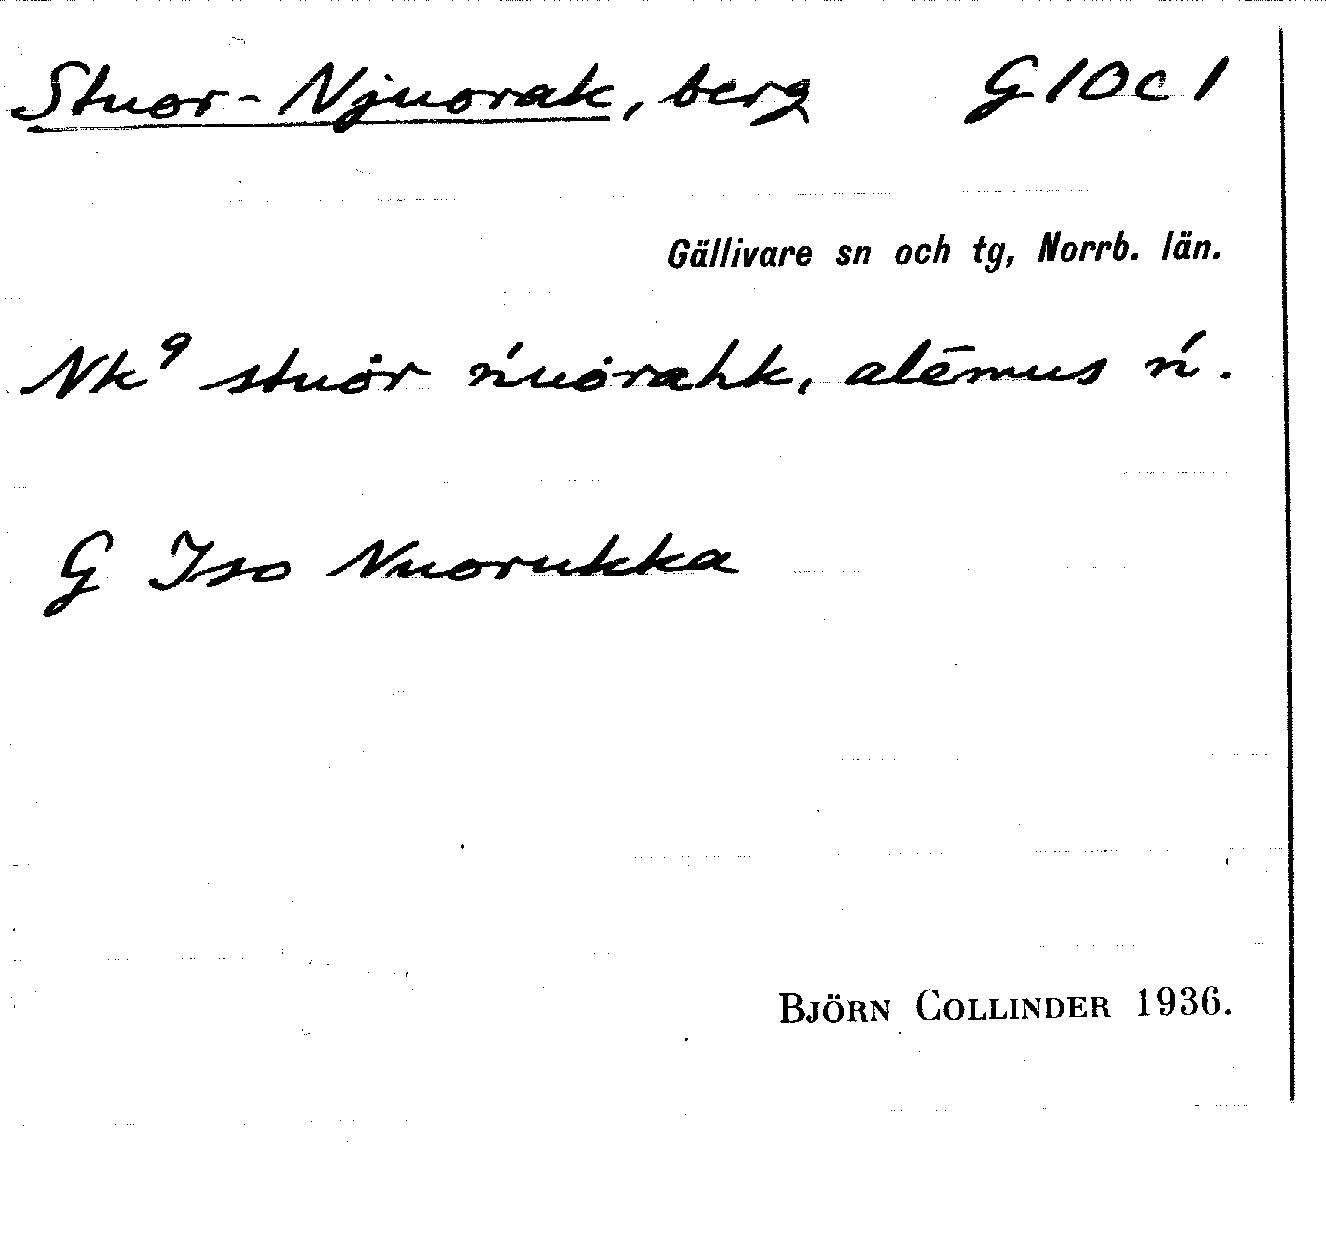 Stuor-Njuorak, berg G10c1
Gällivare sn och tg, Norrb. län.
Nk⁹ stuȯr ńuȯrahk, alēmus ń.
G Iso Nuorukka
BJÖRN COLLINDER 1936.